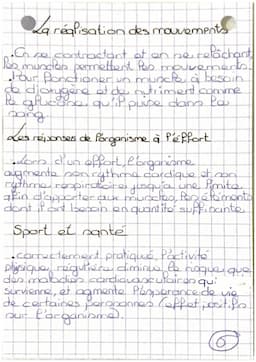 La réalisation des mouvements
. En se contractant et en se relâchant
les muscles permettent les mouvements.
. Pour fonctionner un muscle à besoin
de dioxygène et de nutriment comme
le glucose qu'il puise dans le
sang.
Les réponses de l'organisme à l'effort
. Lors d'un effort, l'organisme
augmente son rythme cardiaque et son
rythme respiratoire jusqu'a une limite
afin d'apporter aux muscles, les éléments
dont il ont besoin en quantité suffisante.
Sport et santé
. correctement pratiqué, l'activité
physique régulière diminue le risque que
des maladies cardiovasculaires qui
survienne, et augmente l'espérance de vie
de certaines personnes (effet positifs
sur l'organisme).
6